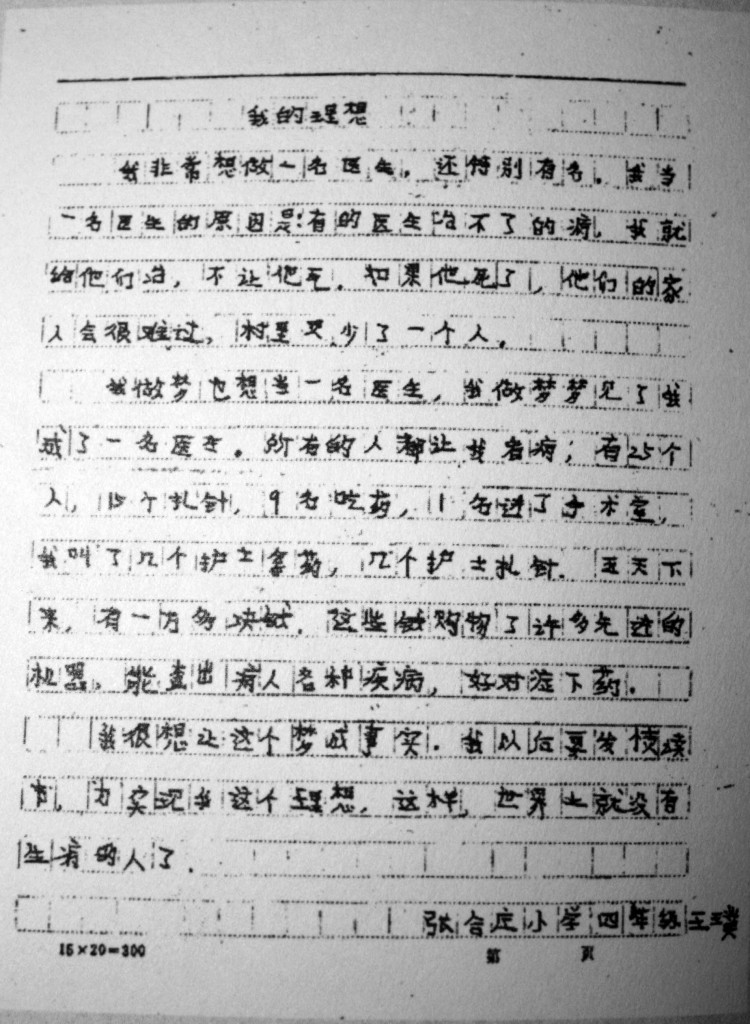 我的理想
我非常想做一名医生，还特别有名。我当
一名医生的原因是：有的医生治不了的病，我就
给他们治，不让他死。如果他死了，他们的家
人会很难过，村里又少了一个人。
我做梦也想当一名医生，我做梦梦见了我
成了一名医生。所有的人都让我看病；有25个
人，15个扎针，9名吃药，1名进了手术室，
我叫了几个护士拿药，几个护士扎针。五天下
来，有一万多块钱，这些钱购物了许多先进的
机器，能查出病人各种疾病，好对症下药。
我很想让这个梦成事实。我以后要发愤读
书，为实现我这个理想，这样，世界上就没有
生病的人了。
张合庄小学四年级王
15×20=300
第 页